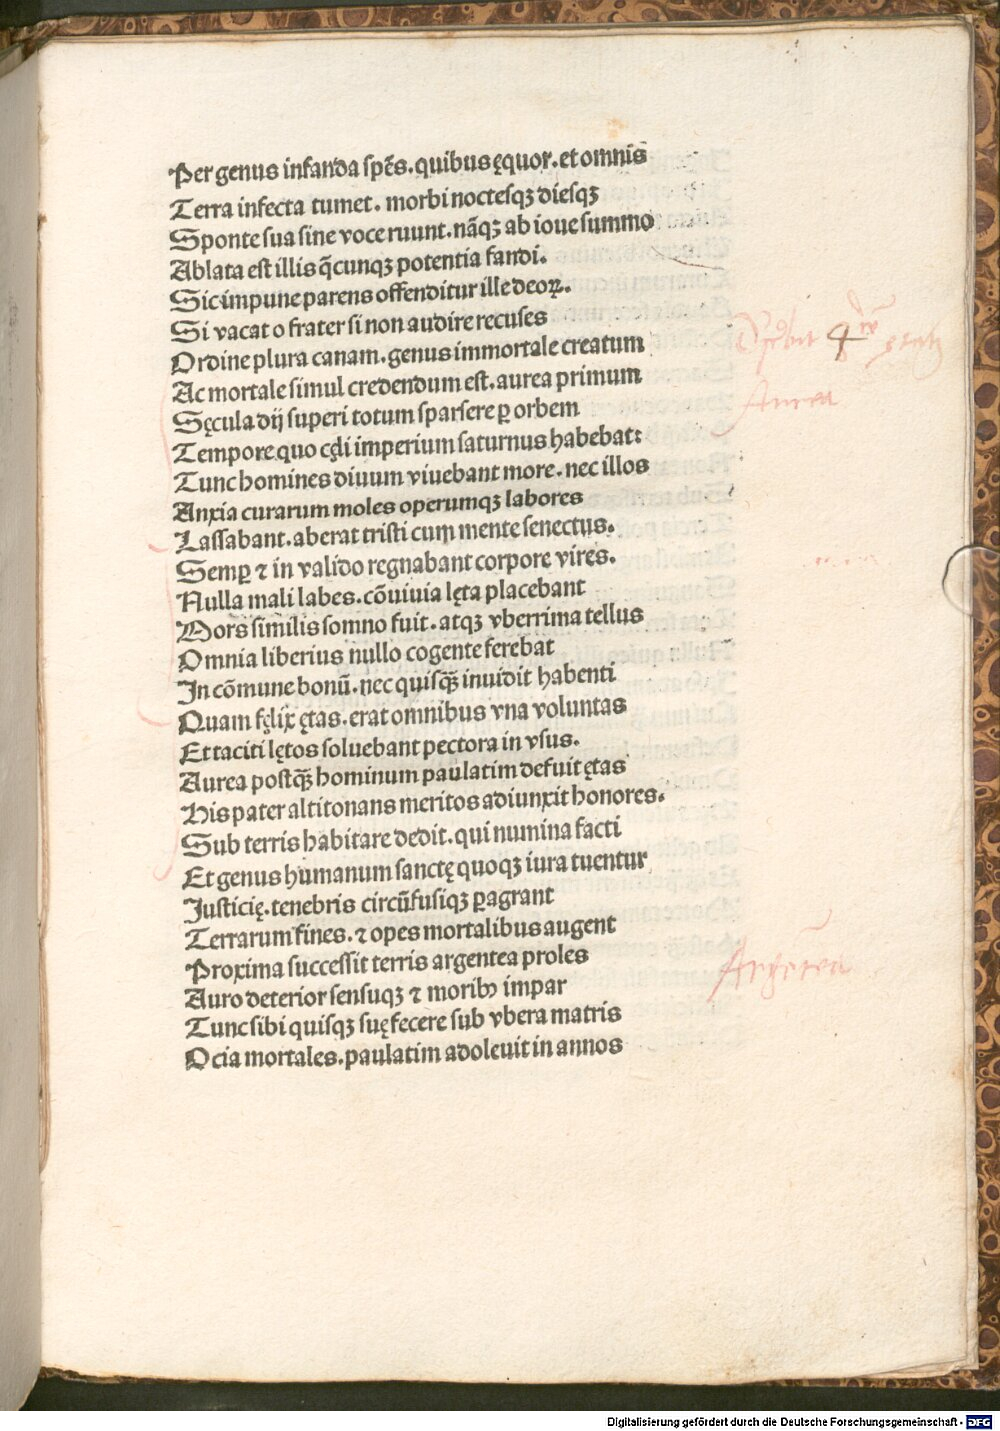 Per genus infanda spẽs. quibus ęquor. et omnis
Terra infecta tumet. morbi noctesqꝫ diesqꝫ
Sponte sua sine voce ruunt. nãqꝫ ab ioue summo
Ablata est illis q̃cunqꝫ potentia fandi.
Sic impune parens offenditur ille deoꝝ.
Si vacat o frater si non audire recuses
Ordine plura canam. genus immortale creatum
Ac mortale simul credendum est. aurea primum
Sęcula dij superi totum sparsere ꝑ orbem
Tempore quo cęli imperium saturnus habebat:
Tunc homines diuum viuebant more. nec illos
Anxia curarum moles operumqꝫ labores
Lassabant. aberat tristi cum mente senectus.
Semꝑ ⁊ in valido regnabant corpore vires.
Nulla mali labes. cõuiuia lęta placebant
Mors similis somno fuit. atqꝫ vberrima tellus
Omnia liberius nullo cogente ferebat
In cõmune bonũ. nec quisq̃ꝫ inuidit habenti
Quam fęlix ętas. erat omnibus vna voluntas
Et taciti lętos soluebant pectora in vsus.
Aurea postq̃ꝫ hominum paulatim defuit ętas
His pater altitonans meritos adiunxit honores.
Sub terris habitare dedit. qui numina facti
Et genus humanum sanctę quoqꝫ iura tuentur
Justicię. tenebris circũfusiqꝫ ꝑagrant
Terrarum fines. ⁊ opes mortalibus augent
Proxima successit terris argentea proles
Auro deterior sensuqꝫ ⁊ moribꝫ impar
Tunc sibi quisqꝫ suę fecere sub vbera matris
Ocia mortales. paulatim adoleuit in annos
4
Aurea
Argentea
Digitalisierung gefördert durch die Deutsche Forschungsgemeinschaft - DFG